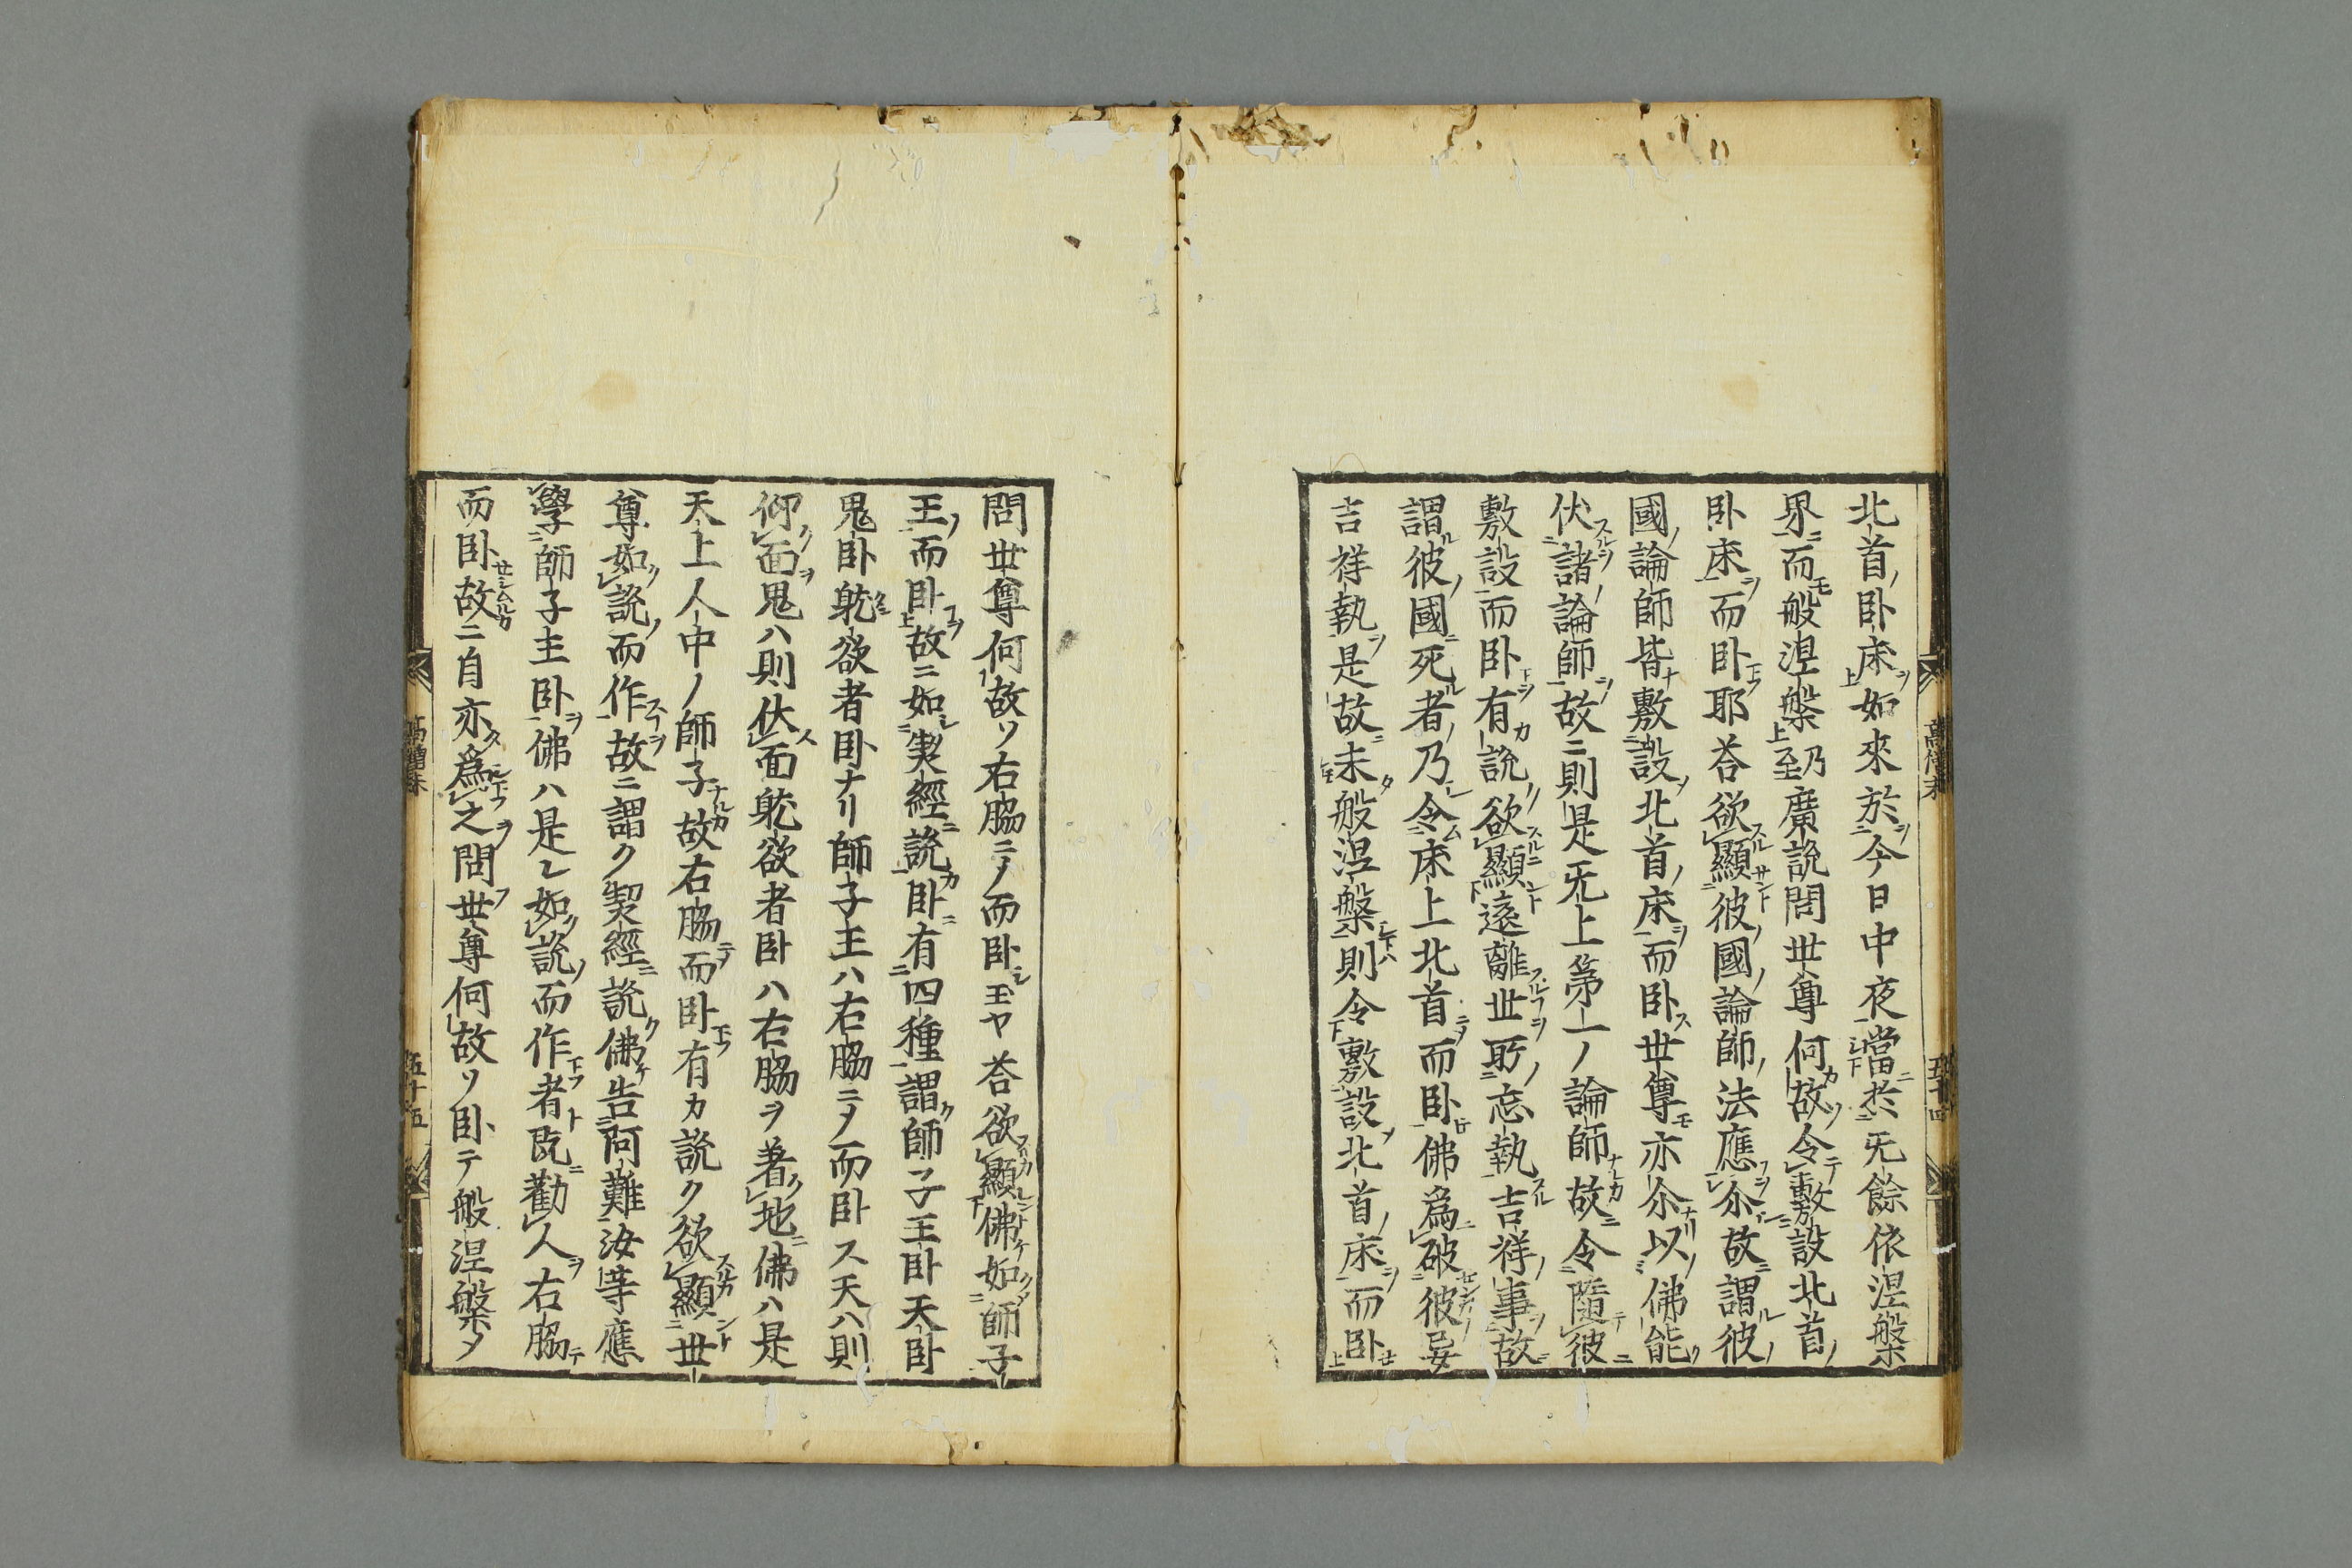 北首卧床如來於今日中夜當於无餘依涅槃
界而般涅槃乃至廣說問世尊何故令敷設北首
卧床而卧耶荅欲顯彼國論師法應尒故謂彼
國論師皆敷設北首床而卧世尊亦尒以佛能
伏諸論師故ニ則是无上第一ノ論師故令隨彼
敷設而卧有說欲顯遠離世所忘執吉祥事故
謂彼國死者乃令床上北首而卧佛爲破彼妄
吉祥執是故未般涅槃則令敷設北首床而卧
五十四
問世尊何故ソ右脇ニノ而卧玉ヤ荅欲顯佛如師子
王而卧故ニ如契經說卧有四種謂師子王卧天卧
鬼卧躭欲者卧ナリ師子王ハ右脇ニノ而卧ス天ハ則
仰面鬼ハ則伏面躭欲者卧ハ右脇ヲ著地佛ハ是
天上人中ノ師子故右脇而卧有カ說ク欲顯世
尊如說而作故ニ謂ク契經說佛告阿難汝等應
學師子主卧佛ハ是レ如說而作者既勸人右脇
而卧故ニ自亦爲之問世尊何故ソ卧テ般涅槃タ
五十五